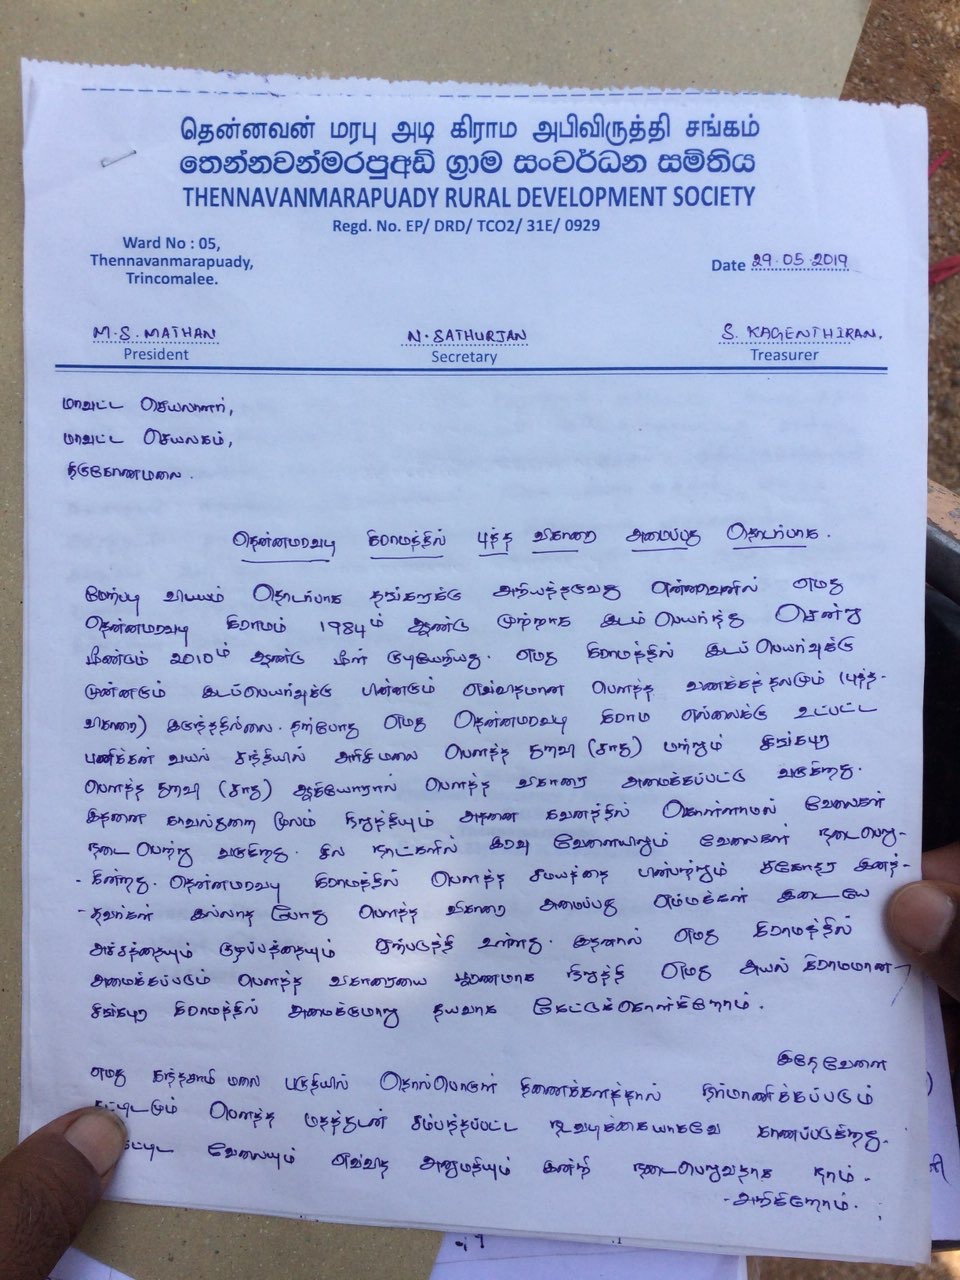 தென்னவன் மரபு அடி கிராம அபிவிருத்தி சங்கம்
තෙන්නවන්මරපුඅඩි ග්‍රාම සංවර්ධන සමිතිය
THENNAVANMARAPUADY RURAL DEVELOPMENT SOCIETY
Regd. No. EP/ DRD/ TCO2/ 31E/ 0929
Ward No : 05,
Thennavanmarapuady,
Trincomalee.
Date 29.05.2019
M.S. MATHAN
President
N. SATHURJAN
Secretary
S. KAGENTHIRAN.
Treasurer
மாவட்ட செயலாளர்,
மாவட்ட செயலகம்,
திருகோணமலை.
தென்னமரவடி கிராமத்தில் புத்த விகாரை அமைப்பது தொடர்பாக.
மேற்படி விடயம் தொடர்பாக தங்களுக்கு அறியத்தருவது என்னவெனில் எமது
தென்னமரவடி கிராமம் 1984ம் ஆண்டு முற்றாக இடம் பெயர்ந்து சென்று
மீண்டும் 2010ம் ஆண்டு மீள் குடியேறியது. எமது கிராமத்தில் இடப் பெயர்வுக்கு
முன்னரும் இடப்பெயர்வுக்கு பின்னரும் எவ்விதமான பௌத்த வணக்கத்தலமும் (புத்த-
விகாரை) இருந்ததில்லை. தற்போது எமது தென்னமரவடி கிராம எல்லைக்கு உட்பட்ட
பணிக்கன் வயல் சந்தியில் அரிசிமலை பௌத்த துறவி (சாது) மற்றும் சிங்கபுர
பௌத்த துறவி (சாது) ஆகியோரால் பௌத்த விகாரை அமைக்கப்பட்டு வருகிறது.
இதனை காவல்துறை மூலம் நிறுத்தியும் அதனை கவனத்தில் கொள்ளாமல் வேலைகள்
நடை பெற்று வருகிறது. சில நாட்களில் இரவு வேளையிலும் வேலைகள் நடைபெறு-
-கின்றது. தென்னமரவடி கிராமத்தில் பௌத்த சமயத்தை பின்பற்றும் சகோதர இனத்-
-தவர்கள் இல்லாத போது பௌத்த விகாரை அமைப்பது எம்மக்கள் இடையே
அச்சத்தையும் குழப்பத்தையும் ஏற்படுத்தி உள்ளது. இதனால் எமது கிராமத்தில்
அமைக்கப்படும் பௌத்த விகாரையை பூரணமாக நிறுத்தி எமது அயல் கிராமமான
சிங்கபுர கிராமத்தில் அமைக்குமாறு தயவாக கேட்டுக்கொள்கிறோம்.
இதேவேளை
எமது கந்தசாமி மலை பகுதியில் தொல்பொருள் திணைக்களத்தால் நிர்மாணிக்கப்படும்
கட்டிடமும் பௌத்த மதத்துடன் சம்பந்தப்பட்ட நடவடிக்கையாகவே காணப்படுகிறது.
வேலையும் எவ்வித அனுமதியும் இன்றி நடைபெறுவதாக நாம்
-அறிகிறோம்.